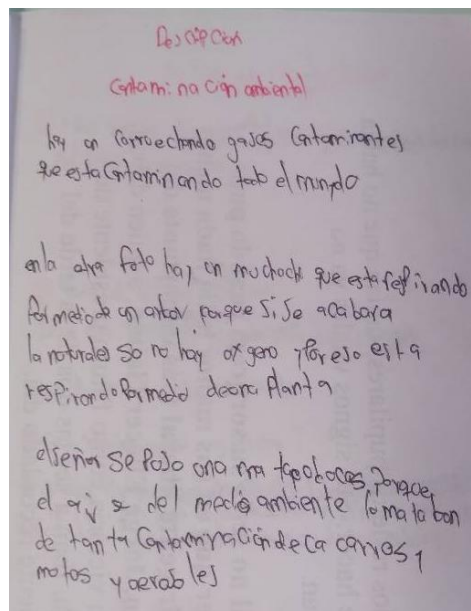 Descipcion
Contaminación ambiental
hay un carro echando gases Contaminantes
que esta Contaminando todo el mundo
en la otra foto hay un muchacho que esta respirando
Por medio de un arbor porque si se acabara
la naturales so no hay oxgeno y Por eso esta
respirondo Por medio de ona Planta
el señor se Poso una tapobocas, Porque,
el del medio ambiente lo mataban
de tanta Contaminación de carros,
motos y aerables